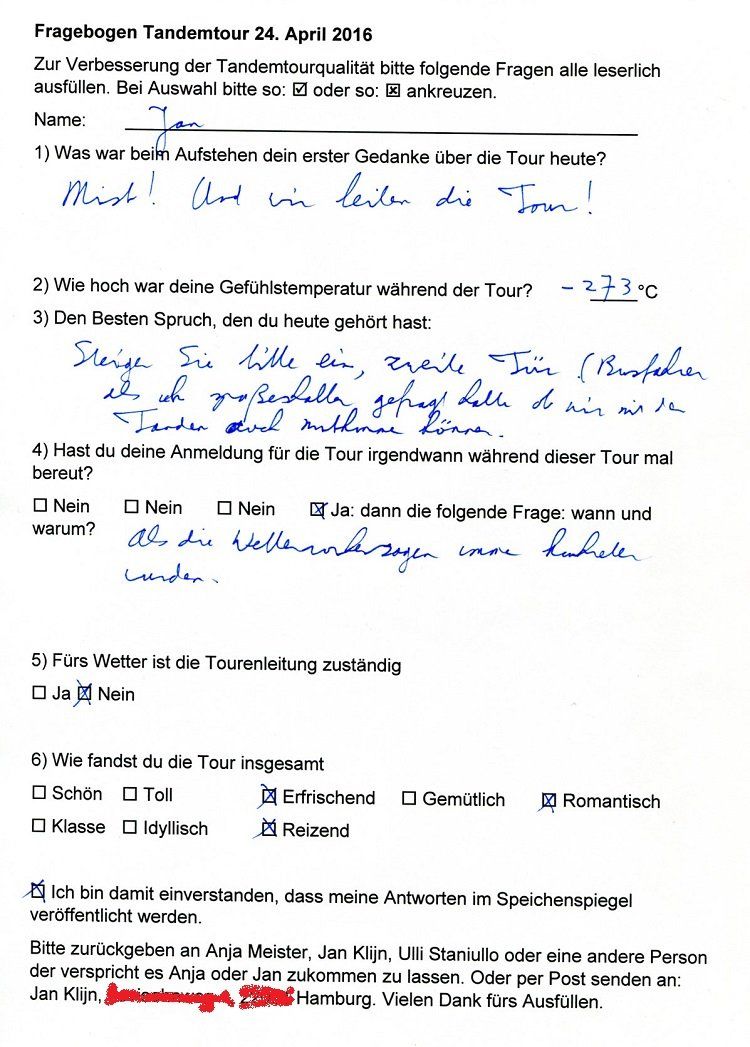 Fragebogen Tandemtour 24. April 2016
Zur Verbesserung der Tandemtourqualität bitte folgende Fragen alle leserlich
ausfüllen. Bei Auswahl bitte so: ☑ oder so: ☒ ankreuzen.
Name: Jan
1) Was war beim Aufstehen dein erster Gedanke über die Tour heute?
Mist! Und wir leiten die Tour!
2) Wie hoch war deine Gefühlstemperatur während der Tour? -273 °C
3) Den Besten Spruch, den du heute gehört hast:
Steigen Sie bitte ein, zweite Tür (Busfahrer
als ich gefragt hatte ob wir mit den
Tandem auch mitkommen können.
4) Hast du deine Anmeldung für die Tour irgendwann während dieser Tour mal
bereut?
☐ Nein ☐ Nein ☐ Nein ☒ Ja: dann die folgende Frage: wann und
warum?
Als die Wettervorhersagen immer konkreter
wurden.
5) Fürs Wetter ist die Tourenleitung zuständig
☐ Ja ☒ Nein
6) Wie fandst du die Tour insgesamt
☐ Schön ☐ Toll ☒ Erfrischend ☐ Gemütlich ☒ Romantisch
☐ Klasse ☐ Idyllisch ☒ Reizend
☒ Ich bin damit einverstanden, dass meine Antworten im Speichenspiegel
veröffentlicht werden.
Bitte zurückgeben an Anja Meister, Jan Klijn, Ulli Staniullo oder eine andere Person
der verspricht es Anja oder Jan zukommen zu lassen. Oder per Post senden an:
Jan Klijn, Hamburg. Vielen Dank fürs Ausfüllen.